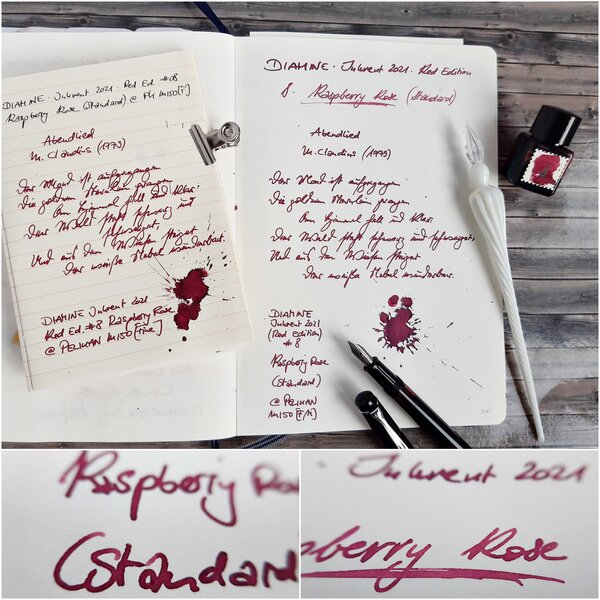 DIAMINE · Inkvent 2021 · Red Ed. #08
Raspberry Rose (Standard) @ M150[F]
Abendlied
M. Claudius (1779)
Der Mond ist aufgegangen
Die goldnen Sternlein prangen
Am Himmel hell und klar:
Der Wald steht schwarz und
schweiget,
Und aus den Wiesen steiget
Der weiße Nebel wunderbar.
DIAMINE Inkvent 2021
Red Ed. #8 Raspberry Rose
@ PELIKAN M150 [Fine]
DIAMINE · Inkvent 2021 · Red Edition
8. Raspberry Rose (Standard)
Abendlied
M. Claudius (1779)
Der Mond ist aufgegangen
Die goldnen Sternlein prangen
Am Himmel hell und klar.
Der Wald steht schwarz und schweiget,
Und aus den Wiesen steiget
Der weiße Nebel wunderbar.
DIAMINE
Inkvent 2021
(Red Edition)
#8
Raspberry Rose
(Standard)
@ PELIKAN
M150 [F/M]
Raspberry Ro
(Standard
Inkvent 2021
berry Rose